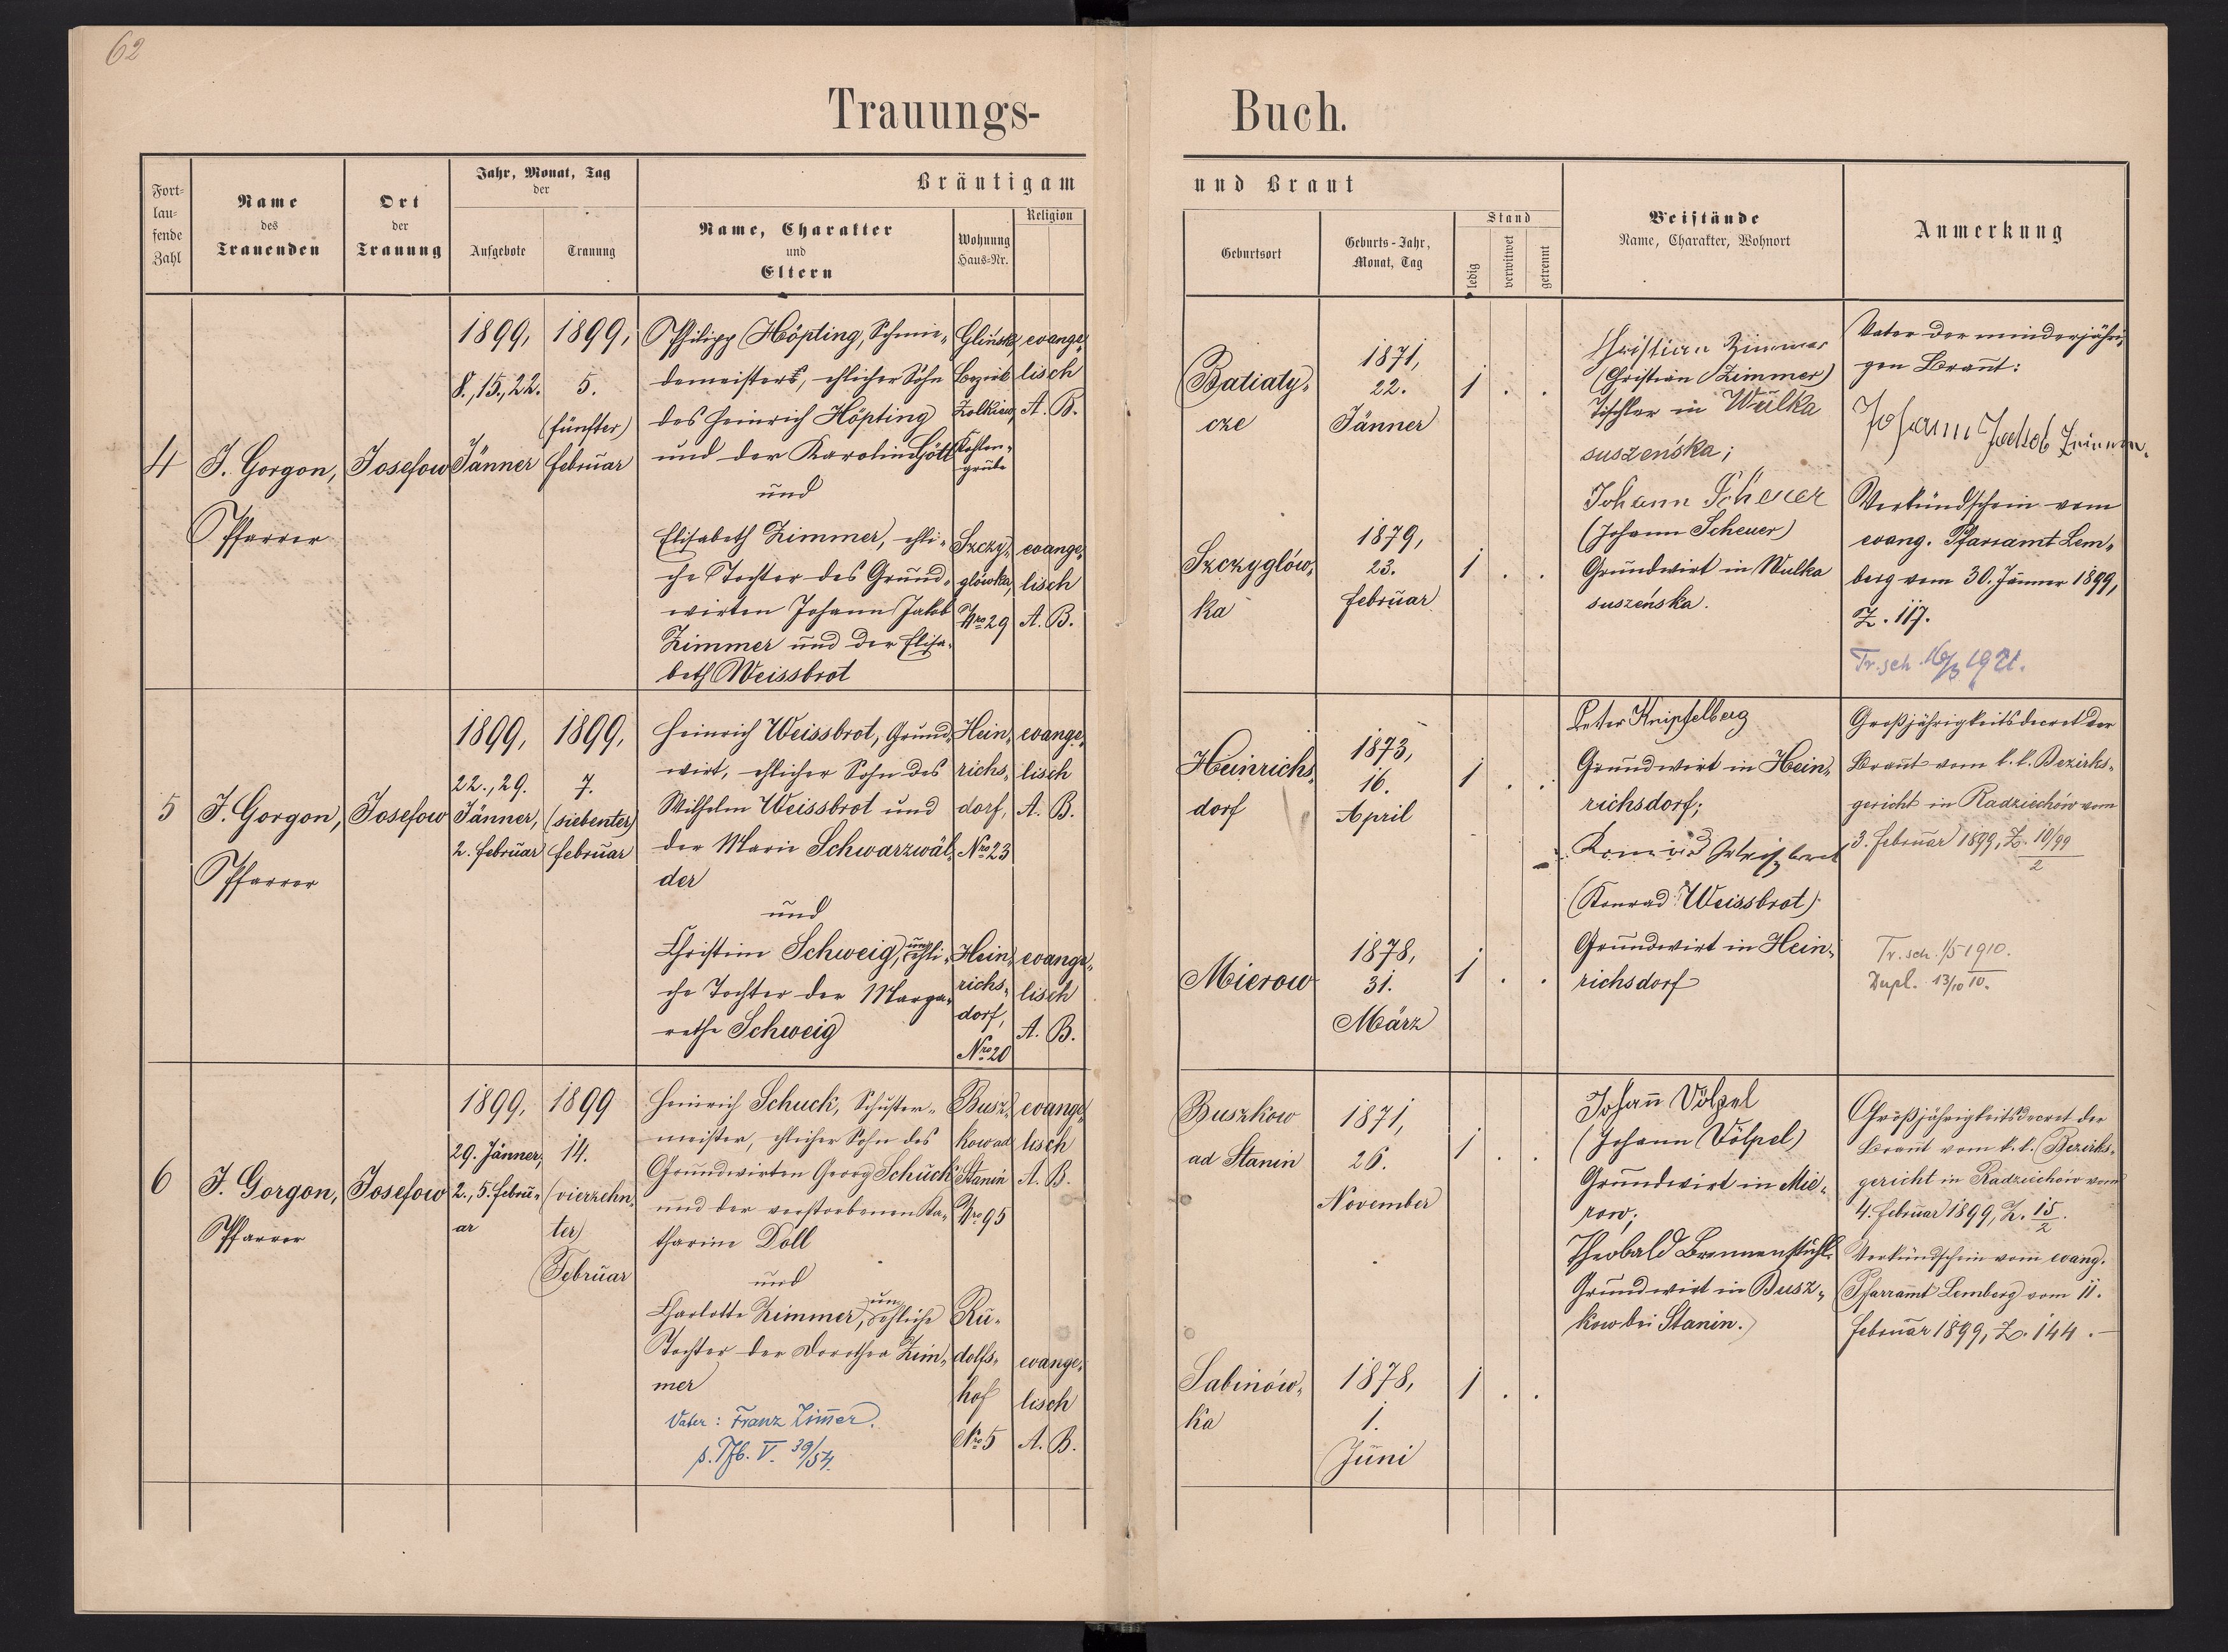 62
Trauungs-
Buch.
Fort-
lau-
fende
Zahl
Name
des
Trauenden
Ort
der
Trauung
Jahr, Monat, Tag
der
Aufgebote
Trauung
Bräutigam
Name, Charakter
und
Eltern
Wohnung
Haus-Nr.
Religion
und Braut
Geburtsort
Geburts-Jahr,
Monat, Tag
Stand
ledig
verwitwet
getrennt
Beistände
Name, Charakter, Wohnort
Anmerkung
4
J. Gorgon,
Pfarrer
Josefow
1899,
8., 15., 22.
Jänner
1899,
5.
(fünfter)
Februar
Philipp Höpting, Schmie-
demeisters, ehlicher Sohn
des Heinrich Höpting
und der Karoline Gött
und
Elisabeth Zimmer, ehli-
che Tochter des Grund-
wirten Johann Jakob
Zimmer und der Elisa-
beth Weissbrot
Glinsk,
Bezirk
Zolkiew,
Kohlen-
grube
Szczy-
glówka,
Nro 29
evange-
lisch
A. B.
evange-
lisch
A. B.
Batiaty-
cze
1871,
22.
Jänner
1 . .
Szczyglów-
ka
1879,
23.
Februar
1 . .
Christian Zimmer
(Christian Zimmer)
Tischler in Wulka
suszeńska;
Johann Scheuer
(Johann Scheuer)
Grundwirt in Wulka
suszeńska.
Vater der minderjähri-
gen Braut:
Johann Jackob
Verkündschein vom
evang. Pfarramt Lem-
berg vom 30. Jänner 1899,
Z. 117.
Tr. sch. 1921.
5
J. Gorgon,
Pfarrer
Josefow
1899,
22., 29.
Jänner,
2. Februar
1899,
7.
(siebenter)
Februar
Heinrich Weissbrot, Grund-
wirt, ehlicher Sohn des
Wilhelm Weissbrot und
der Marie Schwarzwäl-
der
und
Christine Schweig, unehli-
che Tochter der Marga-
rethe Schweig
Hein-
richs-
dorf,
Nro 23
Hein-
richs-
dorf,
Nro 20
evange-
lisch
A. B.
evange-
lisch
A. B.
Heinrichs-
dorf
1873,
16.
April
1 . .
Mierow
1878,
31.
März
1 . .
Peter Knipfelberg
Grundwirt in Hein-
richsdorf;
Konrad Weissbrot
(Konrad Weissbrot)
Grundwirt in Hein-
richsdorf
Großjährigkeitsdecret der
Braut vom k. k. Bezirks-
gericht in Radziechów vom
3. Februar 1899, Z. 10/99
2
Tr. sch. 1/5 1910.
Dupl. 13/10 10.
6
J. Gorgon,
Pfarrer
Josefow
1899,
29. Jänner,
2., 5. Febru-
ar
1899
14.
(vierzehn-
ter)
Februar
Heinrich Schuck, Schuster-
meister, ehlicher Sohn des
Grundwirten Georg Schuck
und der verstorbenen Ka-
tharine Doll
und
Charlotte Zimmer, unehliche
Tochter der Dorothea Zim-
mer
Vater: Franz Zimmer.
s. Tfb. V. 39/54.
Busz-
kow ad
Stanin
Nro 95
Ru-
dolfs-
hof
Nro 5
evange-
lisch
A. B.
evange-
lisch
A. B.
Buszkow
ad Stanin
1871,
26.
November
1 . .
Sabinów-
ka
1878,
1.
Juni
1 . .
Johann Völpel
(Johann Völpel)
Grundwirt in Mie-
row;
Theobald Brennenstuhl
Grundwirt in Busz-
kow bei Stanin.
Großjährigkeitsdecret der
Braut vom k. k. Bezirks-
gericht in Radziechów vom
4. Februar 1899, Z. 15/2.
Verkündschein vom evang.
Pfarramt Lemberg vom 11.
Februar 1899, Z. 144. –